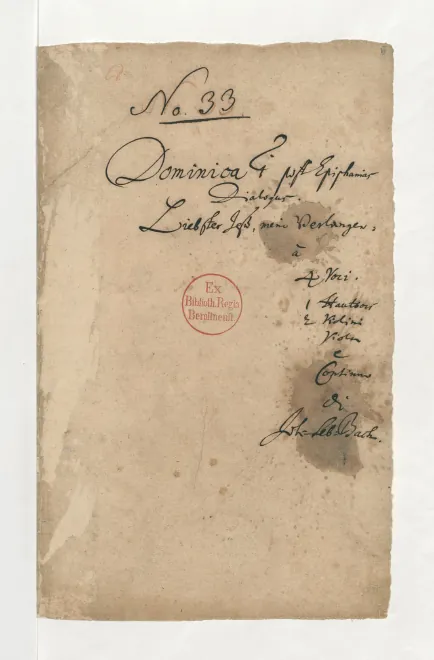 No. 33
Dominica 1 post Epiphanias
Dialogus.
Liebster Jesu, mein Verlangen,
à
4 Voci.
1 Hautbois
2 Violini
Viola
e
Continuo
di
Joh. Seb. Bach.
Ex
Biblioth. Regia
Berolinensi